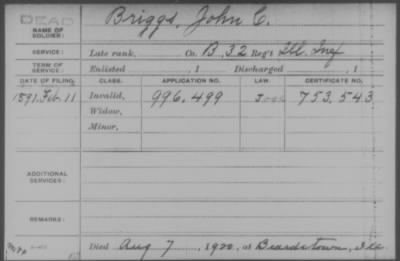 DEAD
Briggs, John C.
NAME OF SOLDIER:
SERVICE: Late rank, Co. B, 32 Reg't Ill. Inf
TERM OF SERVICE: Enlisted , 1 Discharged , 1
DATE OF FILING. CLASS. APPLICATION NO. LAW. CERTIFICATE NO.
1891. Feb. 11 Invalid, 996.499 753.543
Widow,
Minor,
ADDITIONAL SERVICES:
REMARKS:
Died Aug 7, 1920, at Beardstown, Ill.